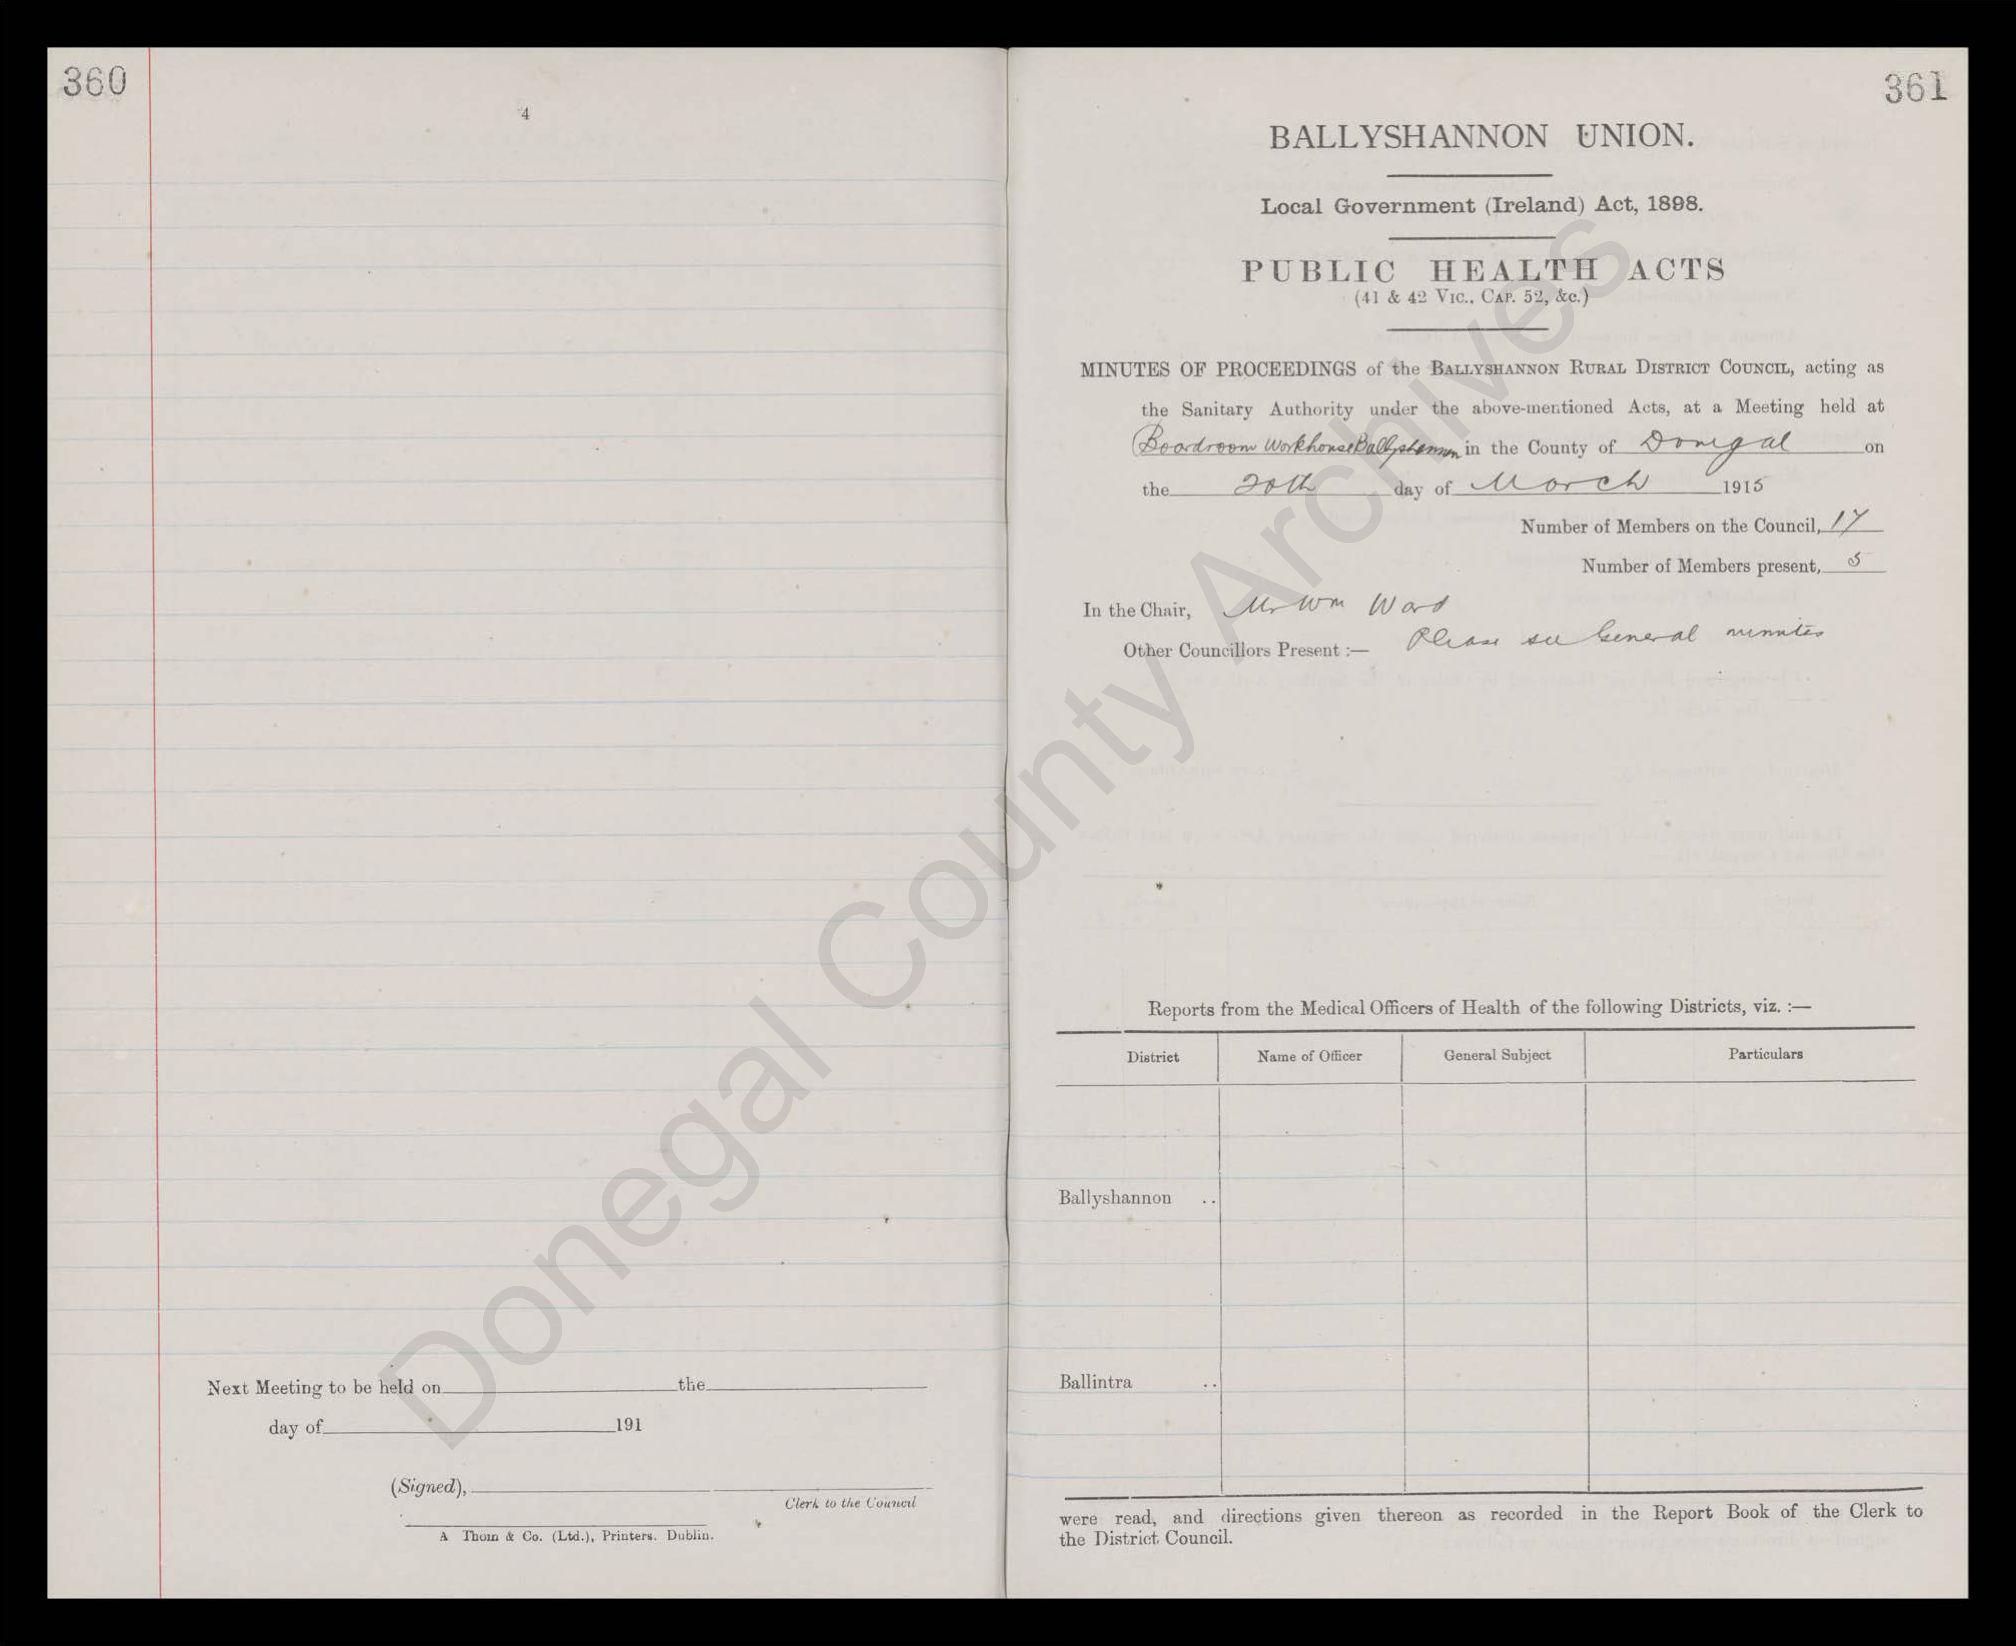 360
4
Next Meeting to be held on the
day of 191
(Signed),
Clerk to the Council
A Thom & Co. (Ltd.), Printers. Dublin.
361
BALLYSHANNON UNION.
Local Government (Ireland) Act, 1898.
PUBLIC HEALTH ACTS
(41 & 42 VIC., CAP. 52, &c.)
MINUTES OF PROCEEDINGS of the BALLYSHANNON RURAL DISTRICT COUNCIL, acting as
the Sanitary Authority under the above-mentioned Acts, at a Meeting held at
Boardroom Workhouse Ballyshannon in the County of Donegal on
the 20th day of March 1915
Number of Members on the Council, 17
Number of Members present, 5
In the Chair, Mr Wm Ward
Other Councillors Present :— Please see General minutes
Reports from the Medical Officers of Health of the following Districts, viz. :—
District Name of Officer General Subject Particulars
Ballyshannon ..
Ballintra ..
were read, and directions given thereon as recorded in the Report Book of the Clerk to
the District Council.
Donegal County Archives